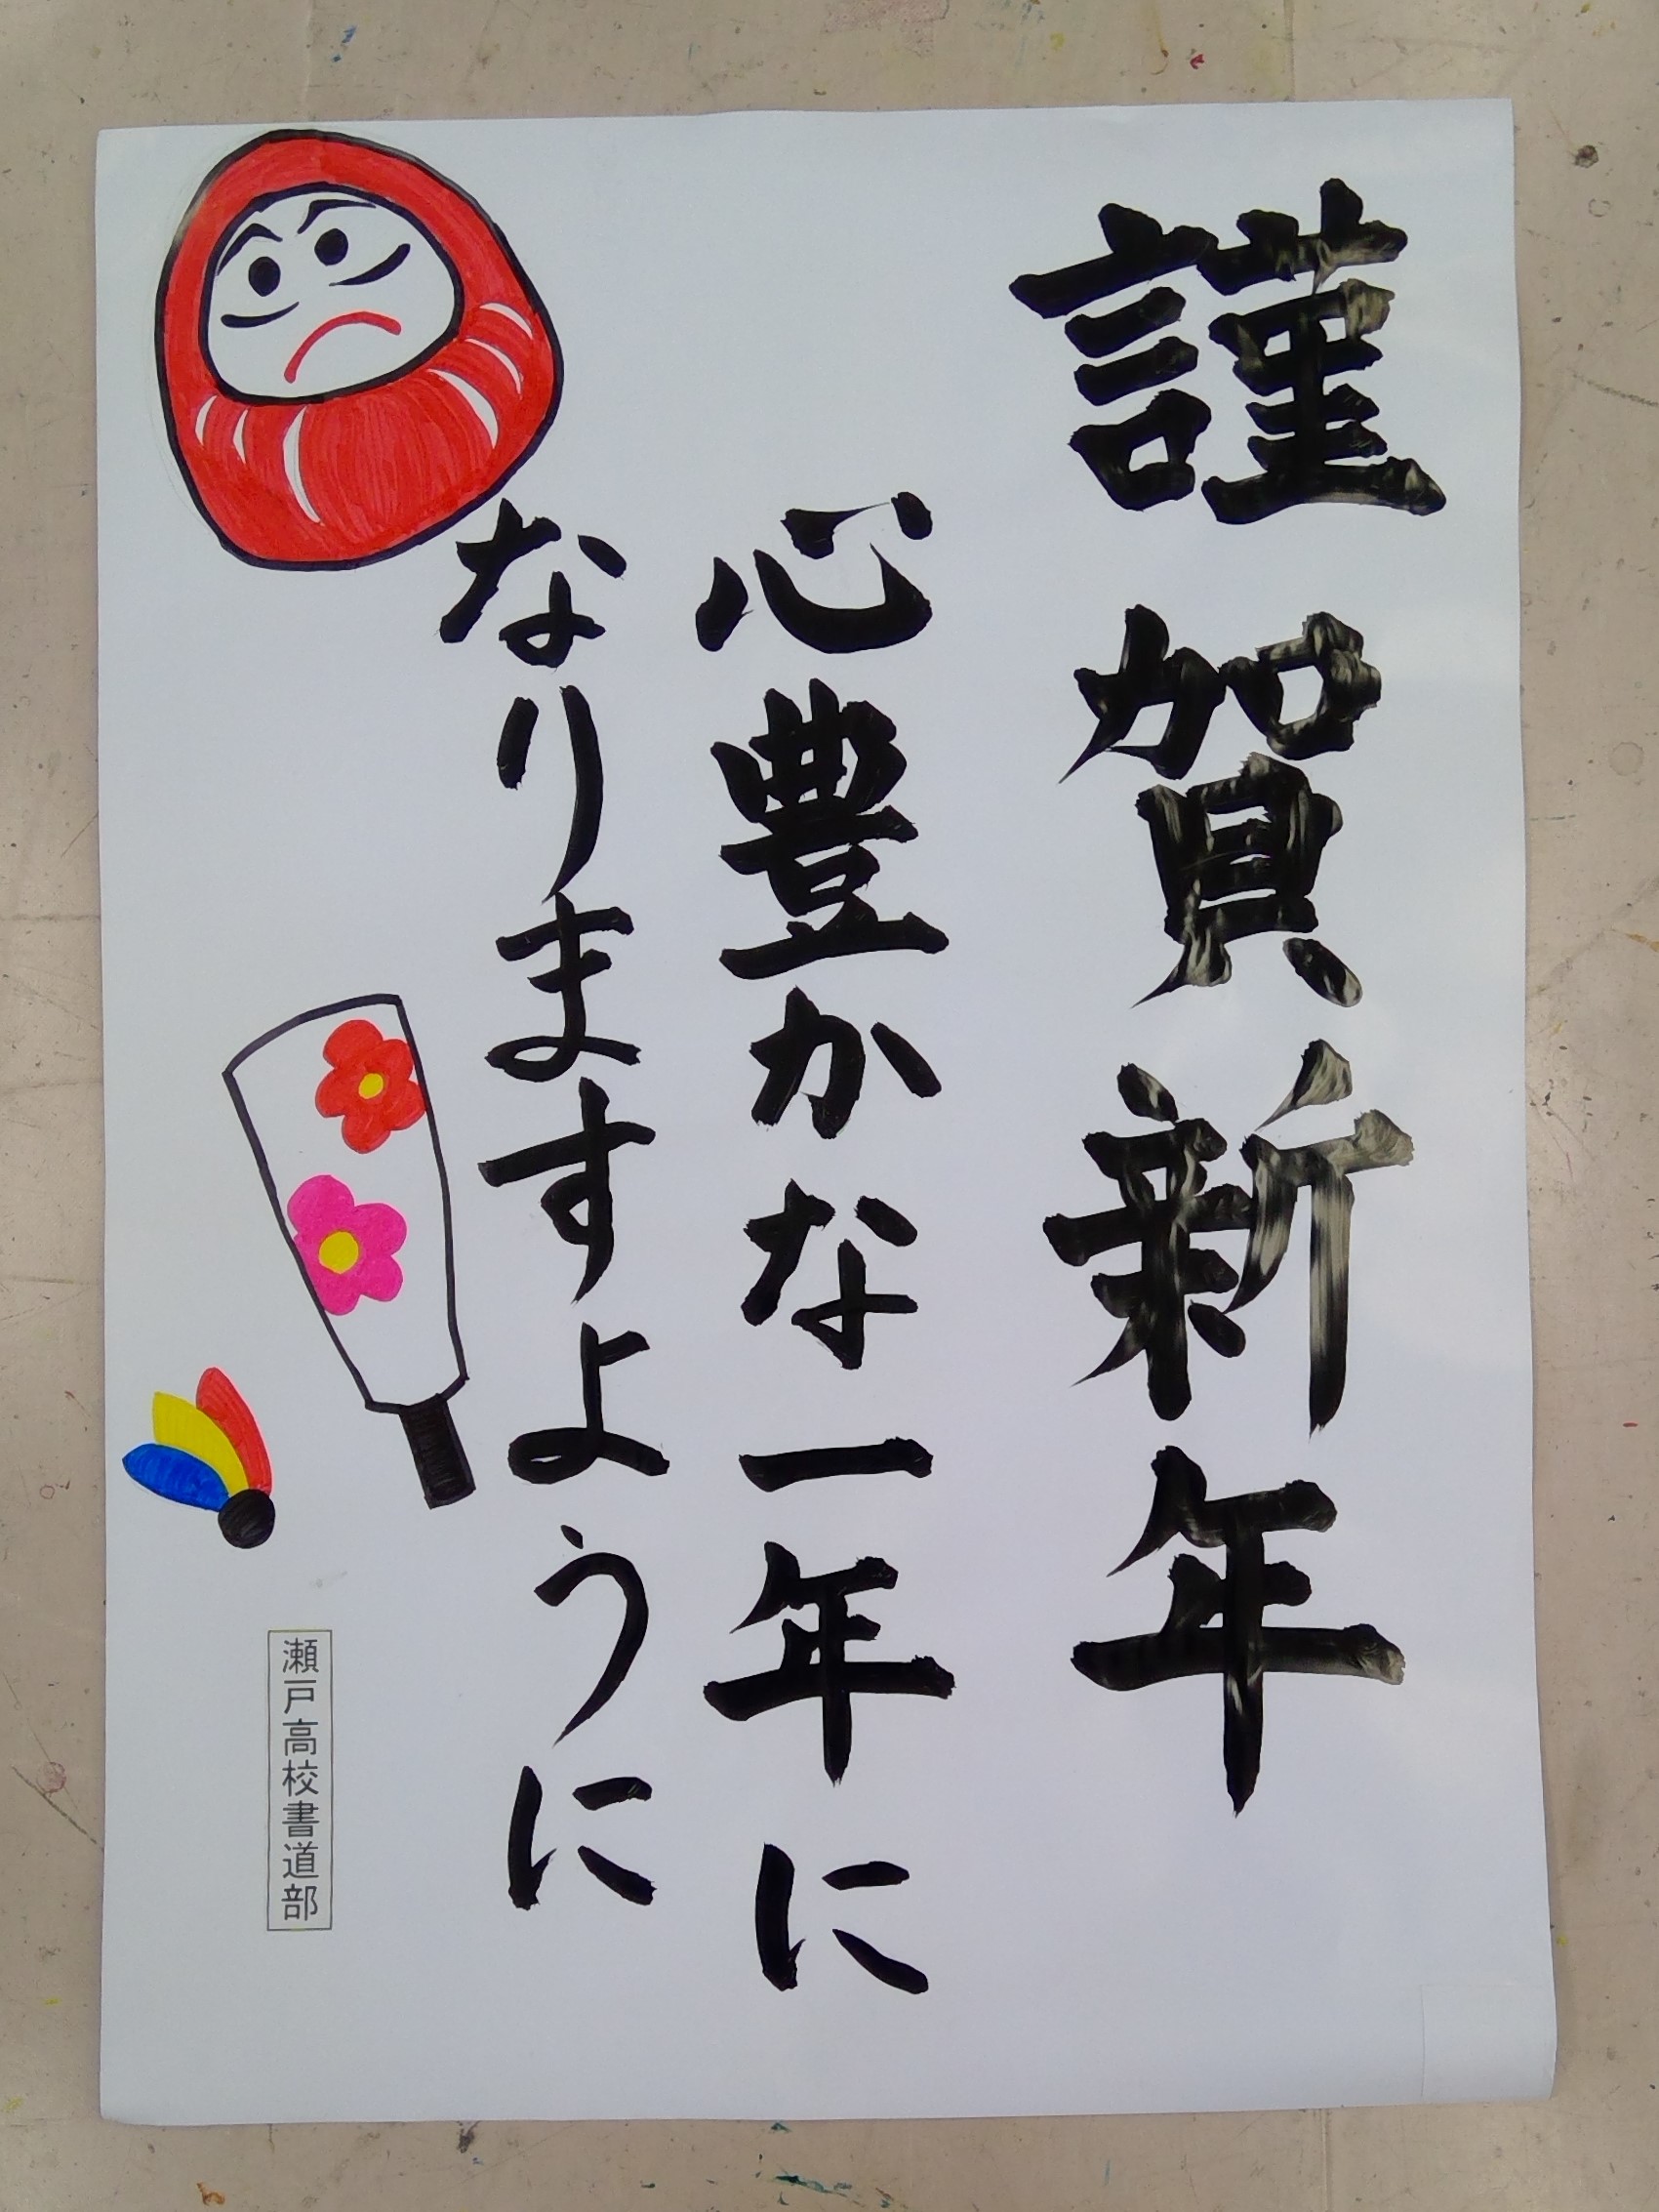 謹賀新年
心豊かな一年に
なりますように
瀬戸高校書道部